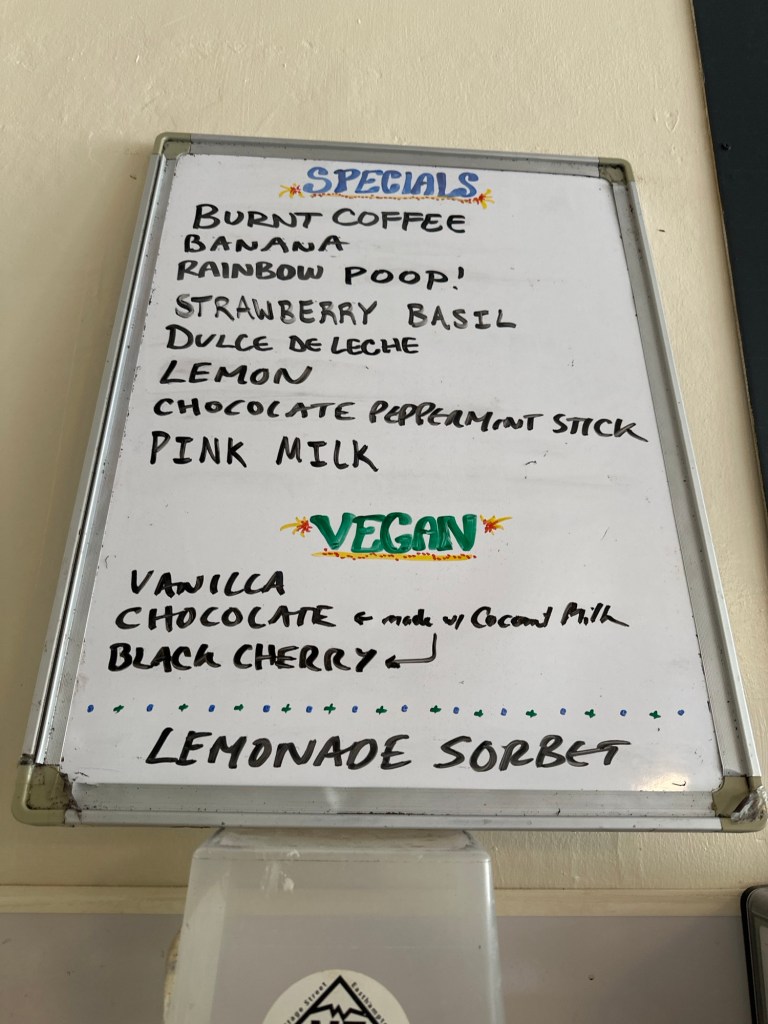 SPECIALS
BURNT COFFEE
BANANA
RAINBOW POOP!
STRAWBERRY BASIL
DULCE DE LECHE
LEMON
CHOCOLATE PEPPERMINT STICK
PINK MILK
VEGAN
VANILLA
CHOCOLATE ← made w/ Coconut Milk
BLACK CHERRY ←
LEMONADE SORBET